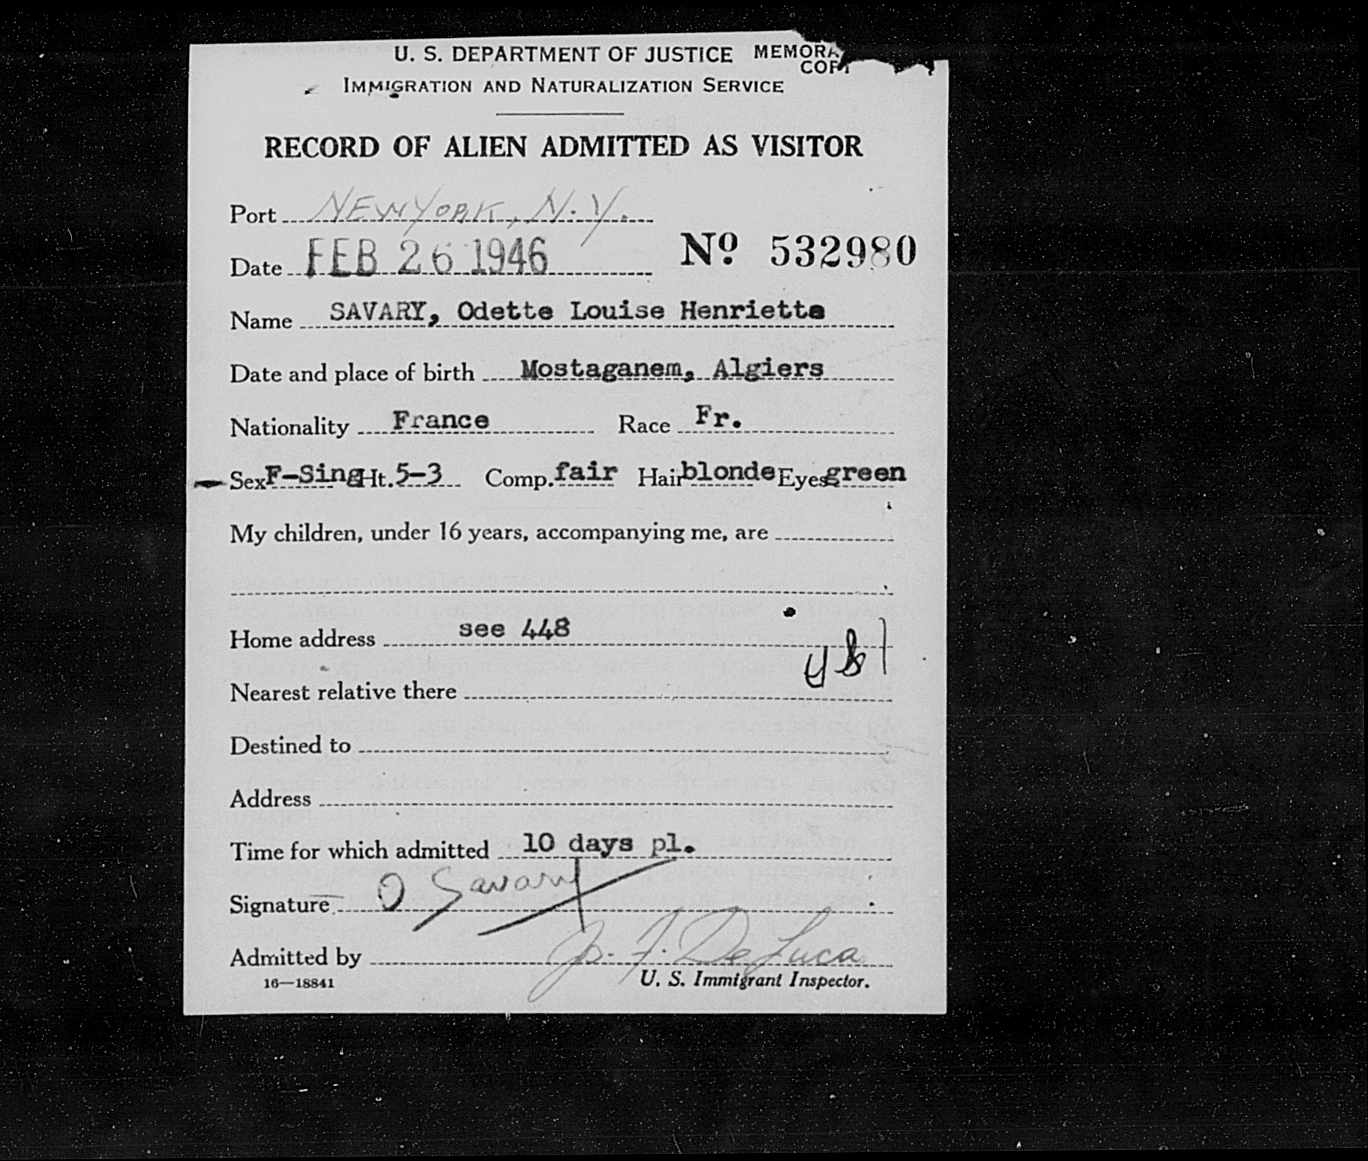 U. S. DEPARTMENT OF JUSTICE MEMORA
COPY
IMMIGRATION AND NATURALIZATION SERVICE
RECORD OF ALIEN ADMITTED AS VISITOR
Port NEW YORK, N.Y.
Date FEB 26 1946 No 532980
Name SAVARY, Odette Louise Henrietta
Date and place of birth Mostaganem, Algiers
Nationality France Race Fr.
Sex F-Sing Ht. 5-3 Comp. fair Hair blonde Eyes green
My children, under 16 years, accompanying me, are
Home address see 448
Nearest relative there
Destined to
Address
Time for which admitted 10 days pl.
Signature O Savary
Admitted by Jo. F. DeLuca
16—18841 U. S. Immigrant Inspector.